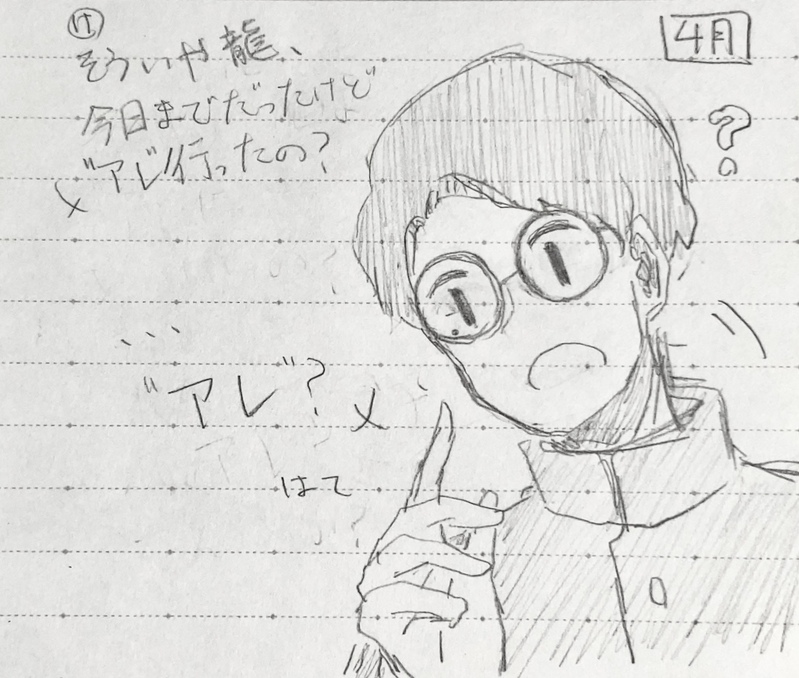 け
そういや龍、
今日までだったけど
"アレ"行ったの？
4月
？
…
"アレ"？
はて